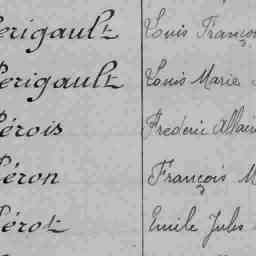 Perigault Louis Franço
Perigault Louis Marie
Pérois Frédéric Allain
Péron François M
Pérot Emile Jules